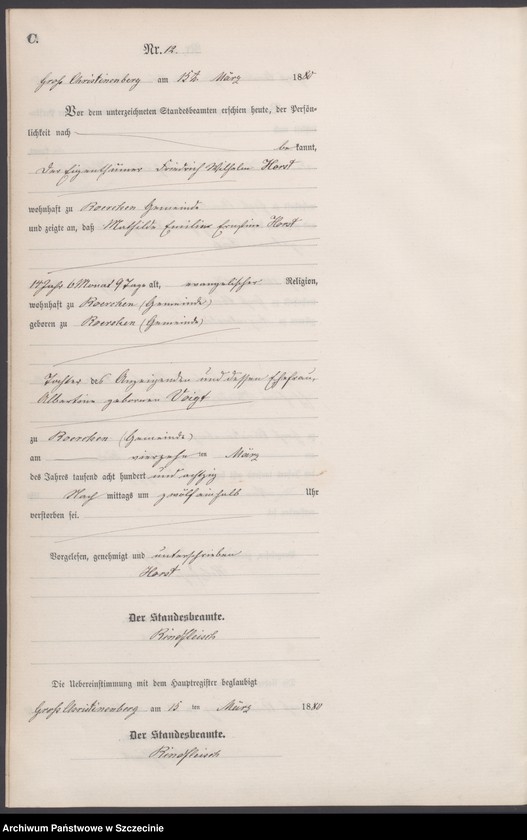 C.
Nr. 12.
Groß Christinenberg am 15ten März 1880
Vor dem unterzeichneten Standesbeamten erschien heute, der Persön-
lichkeit nach
be kannt,
Der Eigenthümer Friedrich Wilhelm Horst
wohnhaft zu Roerchen Gemeinde
und zeigte an, daß Mathilde Emilie Ernstine Horst
14 Jahr 6 Monat 9 Tage alt, evangelischer Religion,
wohnhaft zu Roerchen (Gemeinde)
geboren zu Roerchen (Gemeinde)
Tochter des Anzeigenden und dessen Ehefrau,
Albertine geborenen Voigt
zu Roerchen (Gemeinde)
am vierzehn ten März
des Jahres tausend acht hundert und achtzig
Nach mittags um zwölfeinhalb Uhr
verstorben sei.
Vorgelesen, genehmigt und unterschrieben
Horst
Der Standesbeamte.
Rindfleisch
Die Uebereinstimmung mit dem Hauptregister beglaubigt
Groß Christinenberg am 15 ten März 1880
Der Standesbeamte.
Rindfleisch
Archiwum Państwowe w Szczecinie